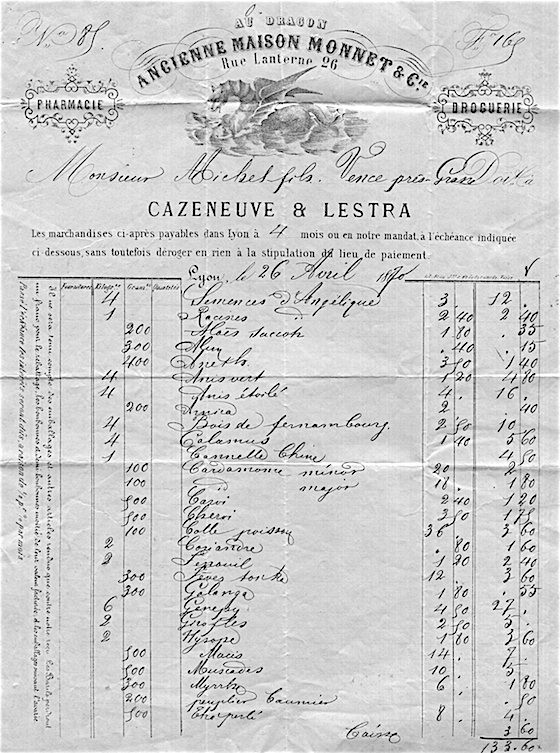 N° 85
F° 165
AU DRAGON
ANCIENNE MAISON MONNET & Cie
Rue Lanterne 26
PHARMACIE
DROGUERIE
Monsieur Michel fils. Vence près Grasse Doit à
CAZENEUVE & LESTRA
Les marchandises ci-après payables dans Lyon à 4 mois ou en notre mandat, à l'échéance indiquée
ci-dessous, sans toutefois déroger en rien à la stipulation du lieu de paiement.
Lyon, le 26 Avril 1870
4 Semences d'Angélique 3 . 12 .
1 Racines 2 40 2 40
200 Aloës succot. 1 80 . 35
300 Alun . 40 . 15
400 Aneth 3 50 1 40
4 Anis vert 1 20 4 80
4 Anis étoilé 4 . 16 .
200 2 . . 40
4 Bois de fernambourg 2 50 10 .
4 Calamus 1 40 5 60
1 Cannelle Chine 4 50
100 Cardamome minor 20 . 2 .
100 d° major 18 . 1 80
500 Carvi 2 40 1 20
500 Chervi 3 50 1 75
100 Colle poisson 36 3 60
2 Coriandre . 80 1 60
2 Fenouil 1 20 2 40
300 Fèves tonka 12 . 3 60
300 Galanga 1 80 . 55
6 Genepy 4 50 27 .
2 Girofles 2 50 5 .
2 Hysope 1 80 3 60
500 Macis 14 . 7 .
500 Muscades 10 . 5 .
300 Myrrhe 6 . 1 80
200 peuplier Baumier . 50
500 Thé perlé 8 . 4 .
Caisse 3 60
133.60